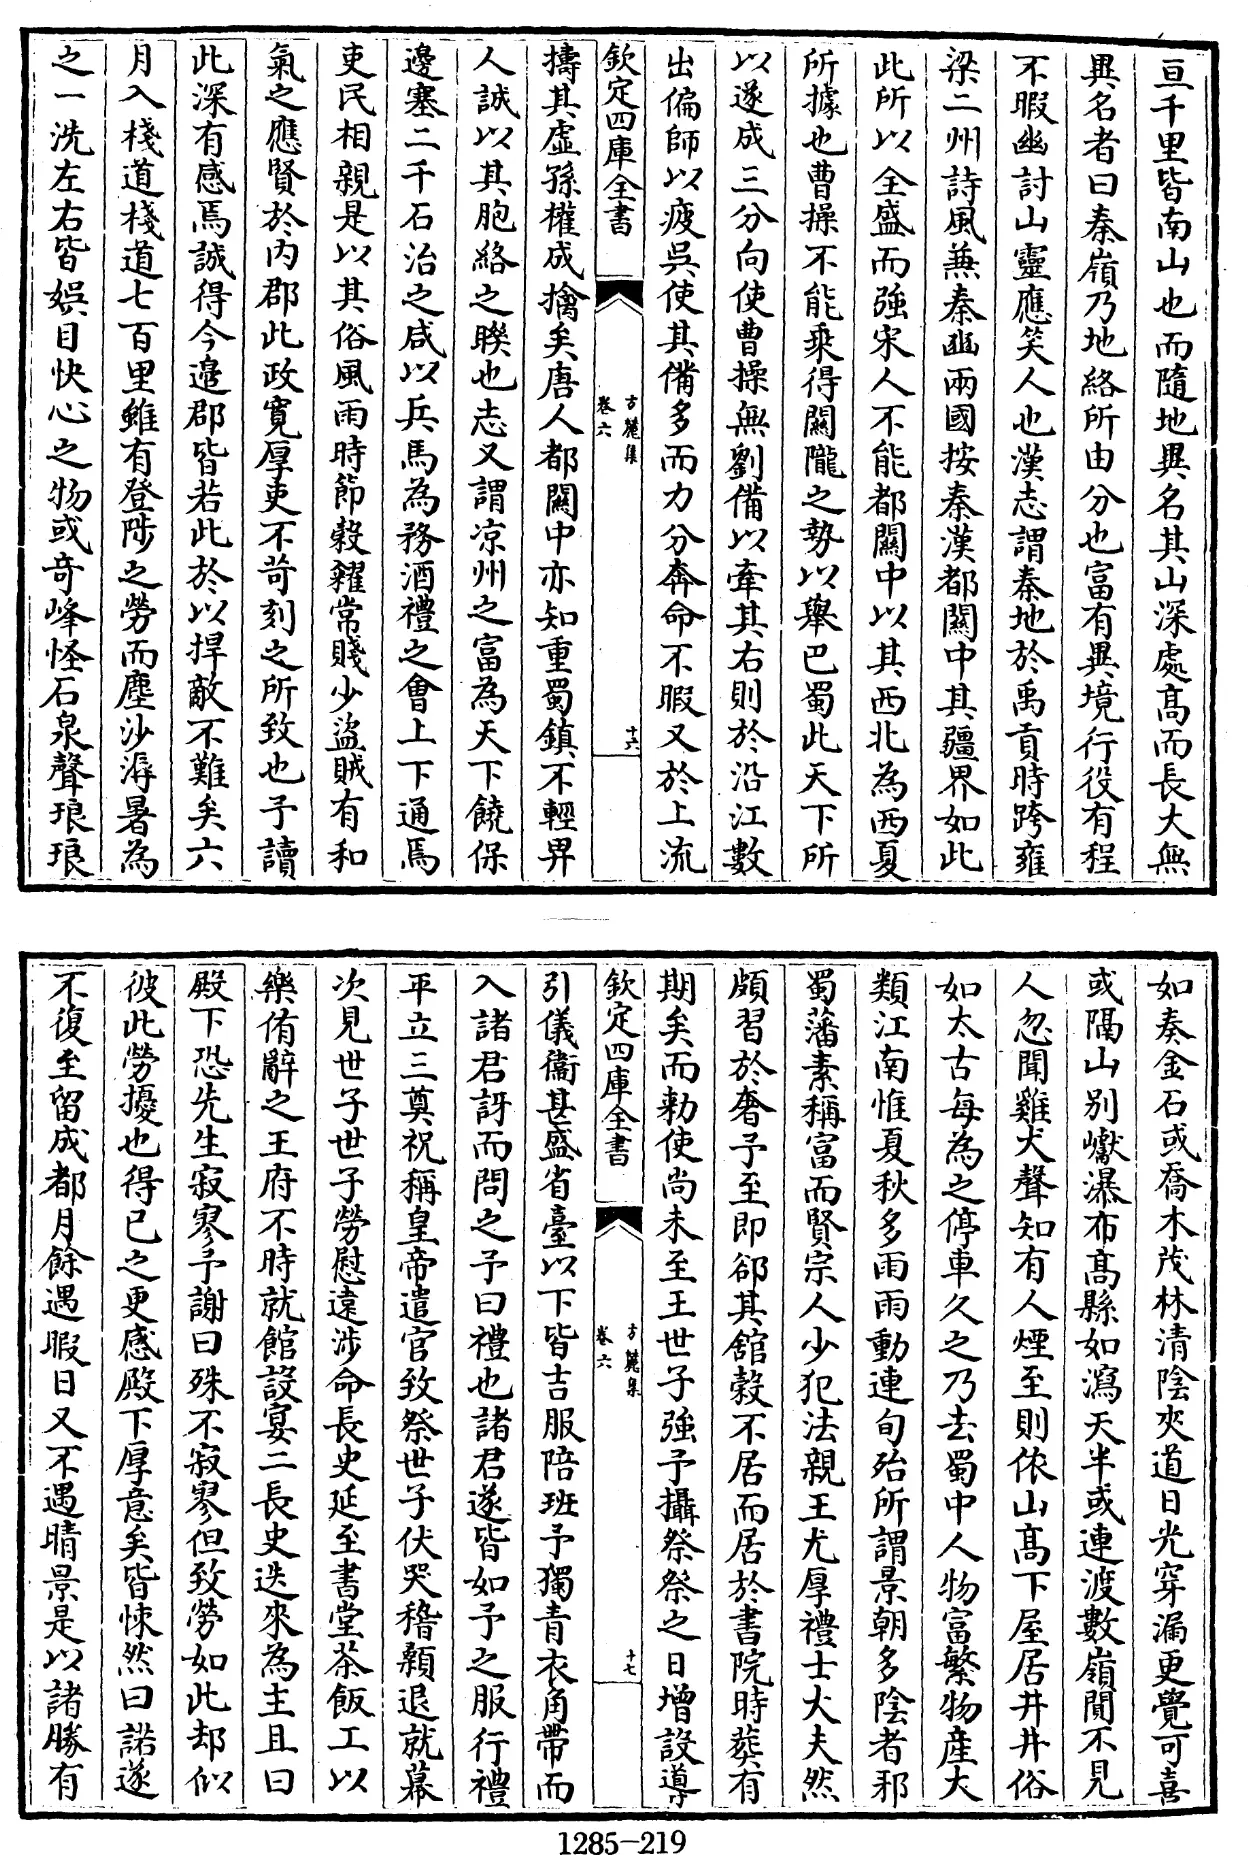 亘千里皆南山也而隨地異名其山深處高而長大無
異名者曰秦嶺乃地絡所由分也富有異境行役有程
不暇幽討山靈應笑人也漢志謂秦地於禹貢時跨雍
梁二州詩風兼秦豳兩國按秦漢都關中其疆界如此
此所以全盛而強宋人不能都關中以其西北為西夏
所據也曹操不能乘得關隴之勢以舉巴蜀此天下所
以遂成三分向使曹操無劉備以牽其右則於沿江數
出偏師以疲吳使其備多而力分奔命不暇又於上流
欽定四庫全書
方麓集
卷六
十六
擣其虛孫權成擒矣唐人都關中亦知重蜀鎮不輕畀
人誠以其胞絡之聨也志又謂凉州之富為天下饒保
邊塞二千石治之咸以兵馬為務酒禮之會上下通焉
吏民相親是以其俗風雨時節穀糴常賤少盜賊有和
氣之應賢於內郡此政寬厚吏不苛刻之所致也予讀
此深有感焉誠得今邉郡皆若此於以捍敵不難矣六
月入棧道棧道七百里雖有登陟之勞而塵沙溽暑為
之一洗左右皆娯目快心之物或奇峰怪石泉聲琅琅
如奏金石或喬木茂林清陰夾道日光穿漏更覺可喜
或隔山别巘瀑布高縣如瀉天半或連渡數嶺閴不見
人忽聞雞犬聲知有人煙至則依山高下屋居井井俗
如太古每為之停車久之乃去蜀中人物富繁物產大
類江南惟夏秋多雨雨動連旬殆所謂景朝多陰者邪
蜀藩素稱富而賢宗人少犯法親王尤厚禮士大夫然
頗習於奢予至即卻其舘穀不居而居於書院時葬有
期矣而勑使尚未至王世子強予攝祭祭之日增設導
欽定四庫全書
方麓集
卷六
十七
引儀衞甚盛省臺以下皆吉服陪班予獨青衣角帶而
入諸君訝而問之予曰禮也諸君遂皆如予之服行禮
平立三奠祝稱皇帝遣官致祭世子伏哭稽顙退就幕
次見世子世子勞慰遠涉命長史延至書堂茶飯工以
樂侑辭之王府不時就館設宴二長史迭來為主且曰
殿下恐先生寂寥予謝曰殊不寂寥但致勞如此却似
彼此勞擾也得已之更感殿下厚意矣皆悚然曰諾遂
不復至留成都月餘遇暇日又不遇晴景是以諸勝有
1285-219